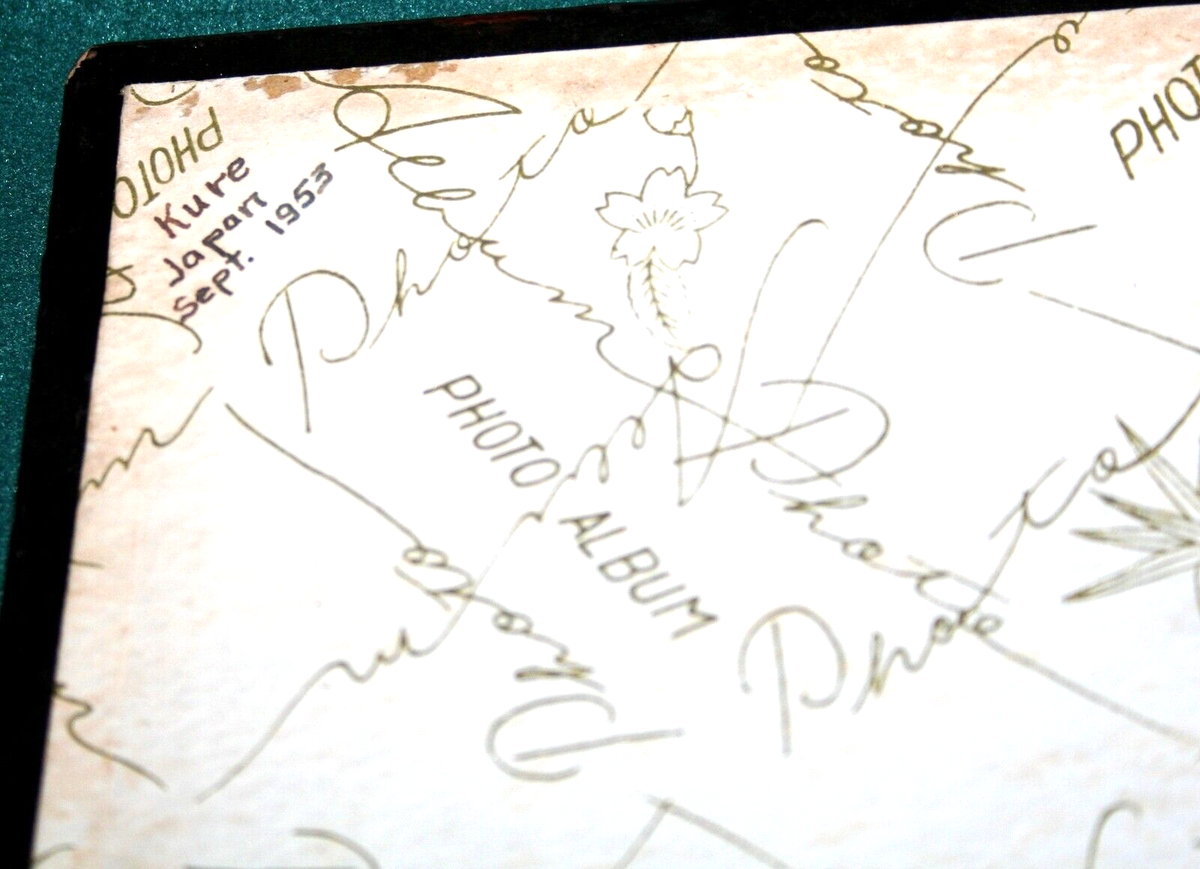 PHOTO
Kure
Japan
Sept. 1953
Photo
Album
Photo
PHOTO
PHOTO ALBUM
Photo
Photo
Photo